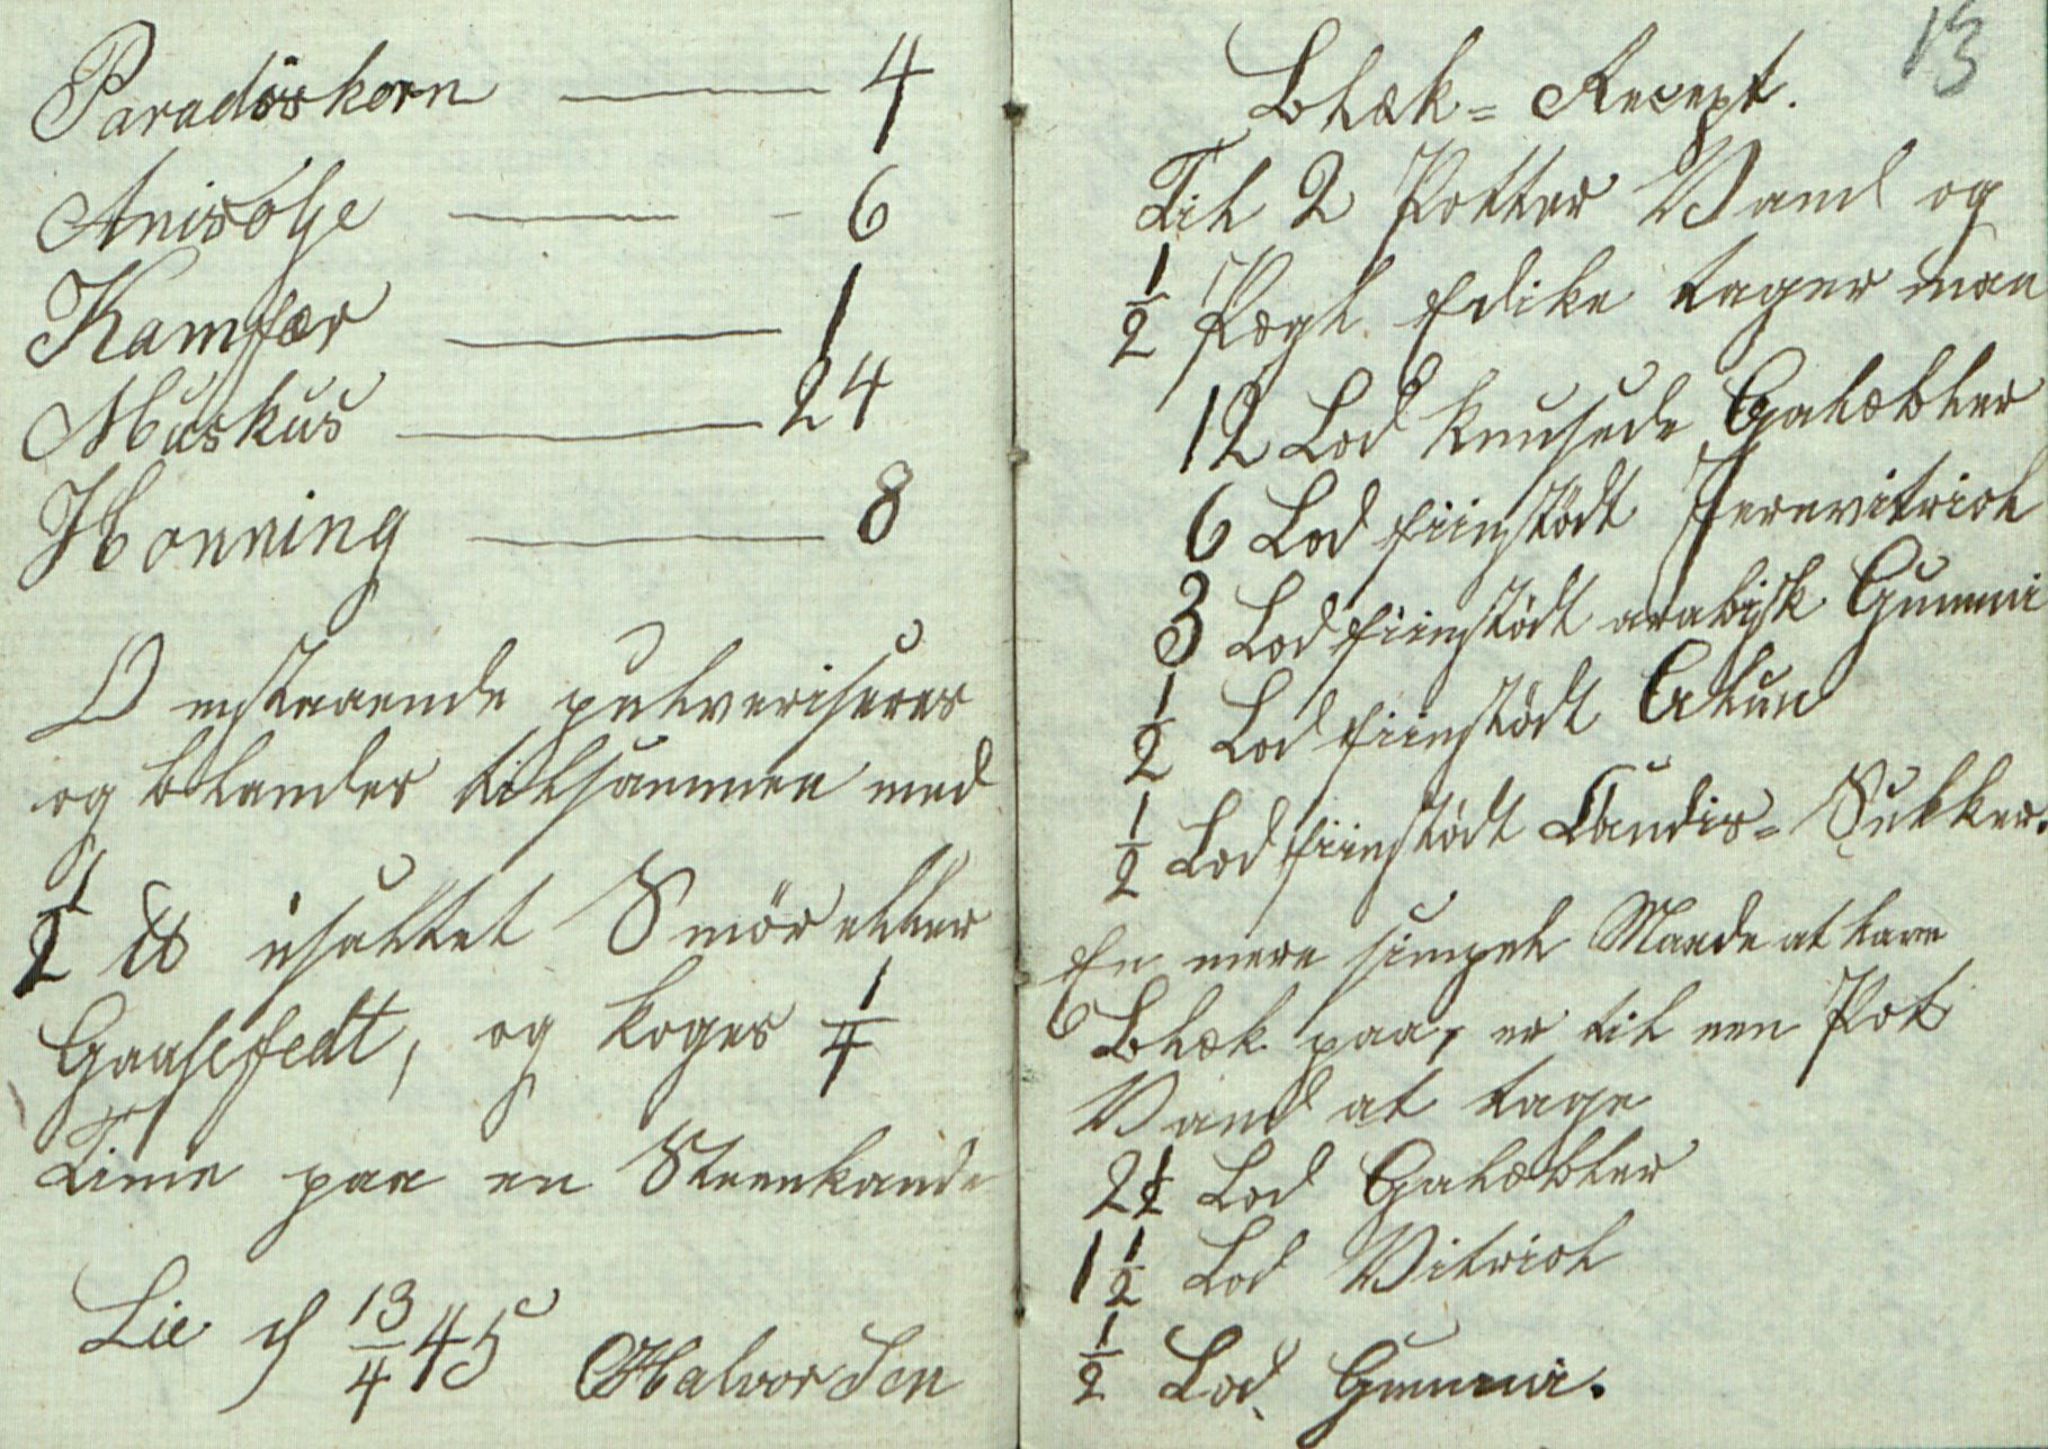 Paradiskorn — 4
Anisolje — 6
Kamfær — 1
Muskus — 24
Honning — 8
Ovenstaaende pulveriseres
og blandes tilsammen med
1/2 ℔ usaltet Smör eller
Gaasefedt, og koges 1/4
Time paa en Steenkande
Lie d 13/4 45 OHalvorsen
13
Blæk=Recept.
Til 2 Potter Vand og
1/2 Pægl Edike tager man
12 Lod knusede Galæbler
6 Lod fiinstödt Jernvitriol
3 Lod fiinstödt arabisk Gummi
1/2 Lod fiinstödt Alun
1/2 Lod fiinstödt Candis=Sukker.
En mere simpel Maade at lave
Blæk paa, er til een Pot
Vand at tage
2 1/2 Lod Galæbler
1 1/2 Lod Vitriol
1/2 Lod Gummi.